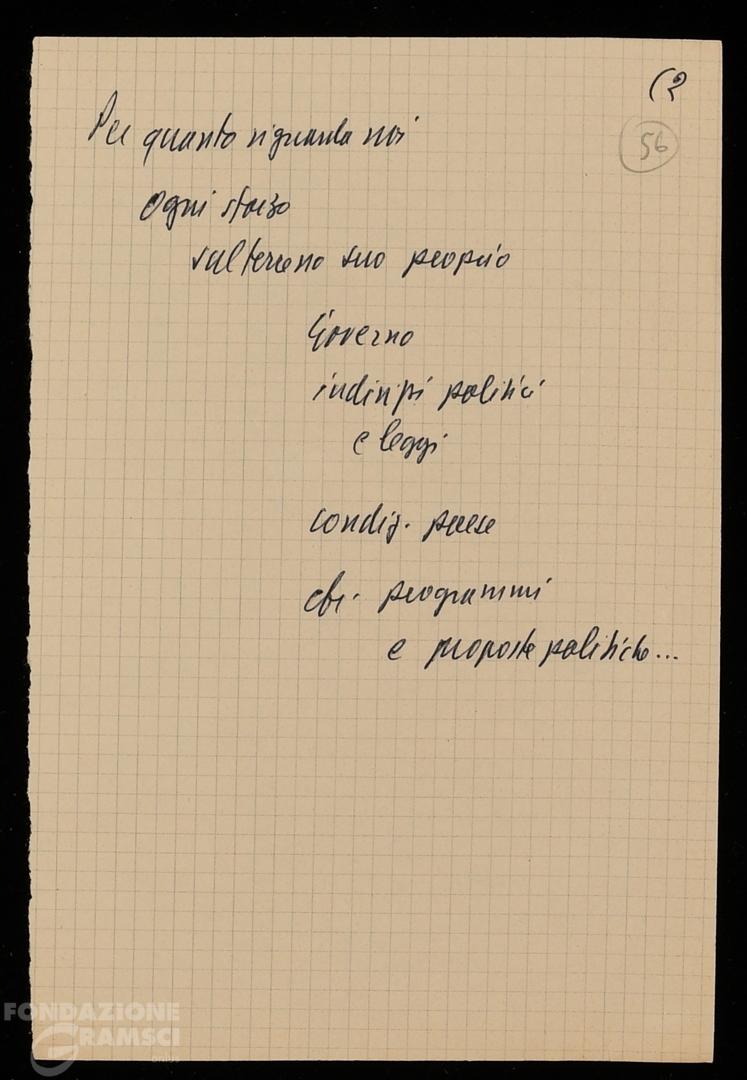 (2
56
Per quanto riguarda noi
ogni sforzo
sul terreno suo proprio
Governo
indirizzi politici
e leggi
condiz. paese
programmi
e proposte politiche...
FONDAZIONE
GRAMSCI
onlus